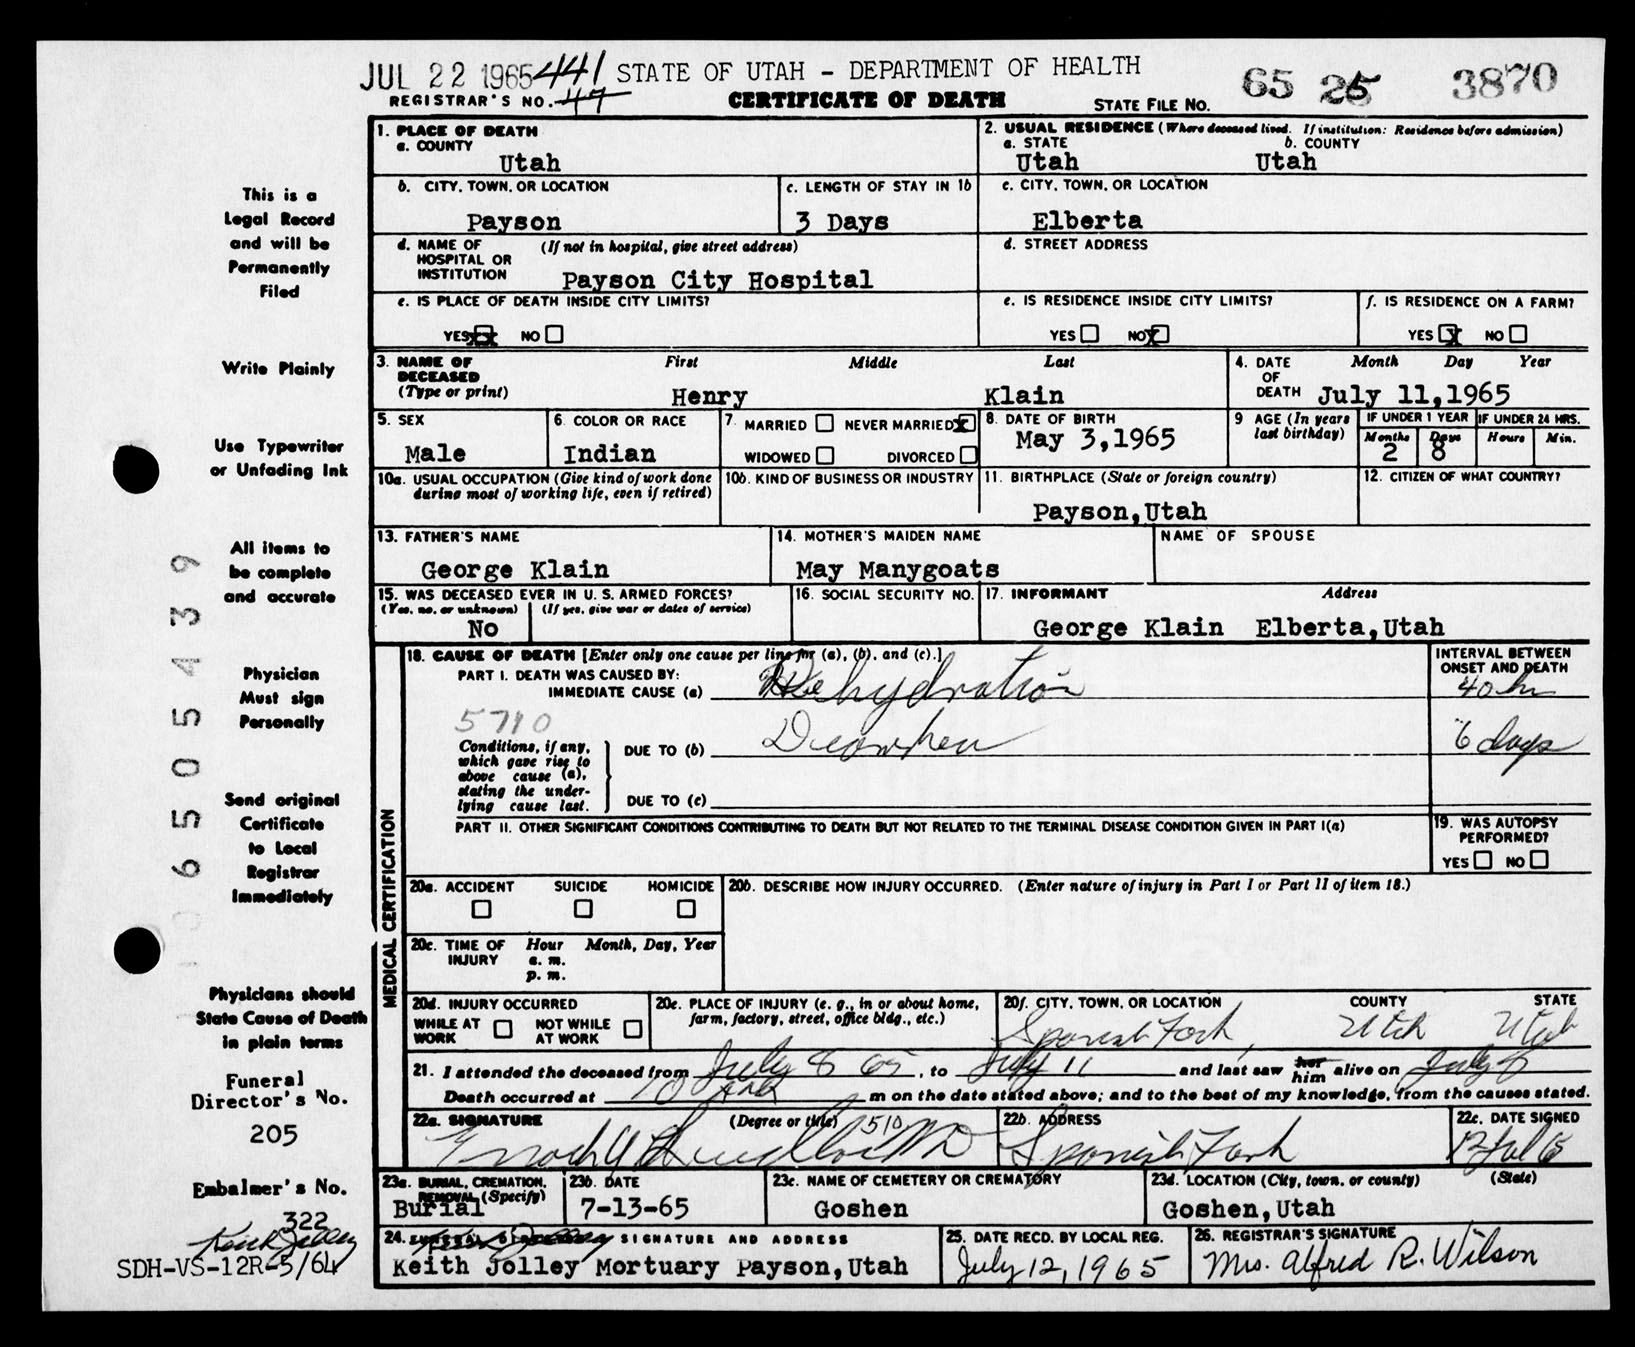 JUL 22 1965 441 STATE OF UTAH - DEPARTMENT OF HEALTH 65 25 3870
REGISTRAR'S NO. 47 CERTIFICATE OF DEATH STATE FILE NO.
This is a
Legal Record
and will be
Permanently
Filed
Write Plainly
Use Typewriter
or Unfading Ink
All items to
be complete
and accurate
Physician
Must sign
Personally
Send original
Certificate
to Local
Registrar
Immediately
Physicians should
State Cause of Death
in plain terms
Funeral
Director's No.
205
Embalmer's No.
322
Keith Jolley
SDH-VS-12R-5/64
6505439
1. PLACE OF DEATH
a. COUNTY
Utah
2. USUAL RESIDENCE (Where deceased lived. If institution: Residence before admission)
a. STATE b. COUNTY
Utah Utah
b. CITY, TOWN, OR LOCATION
Payson
c. LENGTH OF STAY IN 1b
3 Days
c. CITY, TOWN, OR LOCATION
Elberta
d. NAME OF (If not in hospital, give street address)
HOSPITAL OR
INSTITUTION
Payson City Hospital
d. STREET ADDRESS
e. IS PLACE OF DEATH INSIDE CITY LIMITS?
YES XX NO
e. IS RESIDENCE INSIDE CITY LIMITS?
YES NO X
f. IS RESIDENCE ON A FARM?
YES X NO
3. NAME OF First Middle Last
DECEASED
(Type or print)
Henry Klain
4. DATE Month Day Year
OF
DEATH July 11,1965
5. SEX
Male
6. COLOR OR RACE
Indian
7. MARRIED NEVER MARRIED X
WIDOWED DIVORCED
8. DATE OF BIRTH
May 3,1965
9 AGE (In years
last birthday)
IF UNDER 1 YEAR IF UNDER 24 HRS.
Months Days Hours Min.
2 8
10a. USUAL OCCUPATION (Give kind of work done
during most of working life, even if retired)
10b. KIND OF BUSINESS OR INDUSTRY
11. BIRTHPLACE (State or foreign country)
Payson,Utah
12. CITIZEN OF WHAT COUNTRY?
13. FATHER'S NAME
George Klain
14. MOTHER'S MAIDEN NAME
May Manygoats
NAME OF SPOUSE
15. WAS DECEASED EVER IN U. S. ARMED FORCES?
(Yes, no, or unknown) (If yes, give war or dates of service)
No
16. SOCIAL SECURITY NO.
17. INFORMANT Address
George Klain Elberta,Utah
MEDICAL CERTIFICATION
18. CAUSE OF DEATH [Enter only one cause per line for (a), (b), and (c).]
INTERVAL BETWEEN
ONSET AND DEATH
PART I. DEATH WAS CAUSED BY:
IMMEDIATE CAUSE (a) Dehydration 40 hr
5710
Conditions, if any,
which gave rise to
above cause (a),
stating the under-
lying cause last.
DUE TO (b) Diarrhea 6 days
DUE TO (c)
PART II. OTHER SIGNIFICANT CONDITIONS CONTRIBUTING TO DEATH BUT NOT RELATED TO THE TERMINAL DISEASE CONDITION GIVEN IN PART I(a)
19. WAS AUTOPSY
PERFORMED?
YES NO
20a. ACCIDENT SUICIDE HOMICIDE
20b. DESCRIBE HOW INJURY OCCURRED. (Enter nature of injury in Part I or Part II of item 18.)
20c. TIME OF Hour Month, Day, Year
INJURY a. m.
p. m.
20d. INJURY OCCURRED
WHILE AT NOT WHILE
WORK AT WORK
20e. PLACE OF INJURY (e. g., in or about home,
farm, factory, street, office bldg., etc.)
20f. CITY, TOWN, OR LOCATION COUNTY STATE
Spanish Fork, Utah Utah
21. I attended the deceased from July 8 65, to July 11 and last saw her him alive on July
Death occurred at 10 m on the date stated above; and to the best of my knowledge, from the causes stated.
22a. SIGNATURE (Degree or title) 1510
MD
22b. ADDRESS
Spanish Fork
22c. DATE SIGNED
23a. BURIAL, CREMATION,
REMOVAL (Specify)
Burial
23b. DATE
7-13-65
23c. NAME OF CEMETERY OR CREMATORY
Goshen
23d. LOCATION (City, town, or county) (State)
Goshen,Utah
24. FUNERAL DIRECTOR'S SIGNATURE AND ADDRESS
Keith Jolley Mortuary Payson,Utah
25. DATE RECD. BY LOCAL REG.
July 12, 1965
26. REGISTRAR'S SIGNATURE
Mrs. Alfred R. Wilson